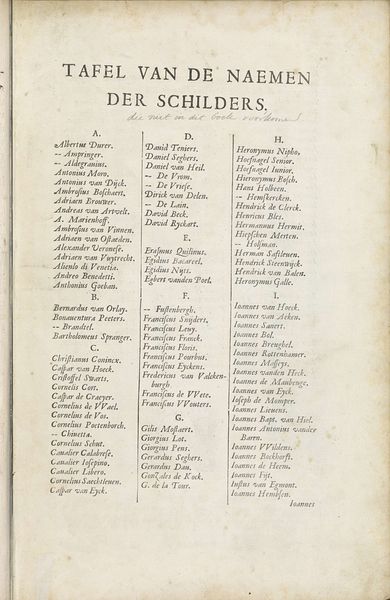 TAFEL VAN DE NAEMEN
DER SCHILDERS,
die niet in dit boek voorkomen
A.
Albertus Durer.
-- Ampringer.
-- Aldegranius.
Antonius Moro.
Antonius van Dijck.
Ambrosius Boschaert.
Adriaen Brouwer.
Andreas van Artvelt.
A. Marienhoff.
Ambrosius van Vinnen.
Adriaen van Ostaeden.
Alexander Veronese.
Adriaen van Vuytrecht.
Alienlo di Venetia.
Andreo Benedetti.
Anthonius Goebau.
B.
Bernardus van Orlay.
Bonauentura Peeters.
-- Brandtel.
Bartholomeus Spranger.
C.
Christianus Coninex.
Caspar van Hoeck.
Cristoffel Swarts.
Cornelis Cort.
Caspar de Craeyer.
Cornelius de VVael.
Cornelius de Vos.
Cornelius Poetenborch.
-- Chouetta.
Cornelius Schut.
Caualier Calabrese.
Caualier Iosepino.
Caualier Libero.
Cornelius Saechtleuen.
Caspar van Eyck.
D.
Dauid Teniers.
Daniel Seghers.
Daniel van Heil.
-- De Vrom.
-- De Vriese.
Dirick van Delen.
-- De Lain.
David Beck.
David Ryckart.
E.
Erasmus Quilinus.
Egidius Bacareel.
Egidius Nijts.
Egbert vanden Poel.
F.
-- Fustenbergh.
Franciscus Snijders.
Franciscus Leuy.
Franciscus Franck.
Franciscus Floris.
Franciscus Pourbus.
Franciscus Eyckens.
Fredericus van Valcken-
burgh.
Franciscus de VVete.
Franciscus VVouters.
G.
Gilis Mostaert.
Giorgius Lot.
Giorgius Pens.
Gerardus Seghers.
Gerardus Dau.
Gonzales de Kock.
G. de la Tour.
H.
Hieronymus Nipho.
Hoefnagel Senior.
Hoefnagel Iunior.
Hieronymus Bosch.
Hans Holbeen.
-- Hemskercken.
Hendrick de Clerck.
Henricus Bles.
Hermannus Hermit.
Hiepschen Merten.
-- Hofman.
Herman Saftleuen.
Hendrick Steenwijck.
Hendrik van Balen.
Hieronymus Galle.
I.
Ioannes van Hoeck.
Ioannes van Aeken.
Ioannes Sanert.
Ioannes Bol.
Ioannes Breughel.
Ioannes Rottenhamer.
Ioannes Masseys.
Ioannes vanden Heck.
Ioannes de Maubeuge.
Ioannes van Eyck.
Ioseph de Momper.
Ioannes Lieuens.
Ioannes Bapt. van Hiel.
Ioannes Antonius vander
Baren.
Ioannes VVildens.
Ioannes Bockhorst.
Ioannes de Heem.
Ioannes Fijt.
Iustus van Egmont.
Ioannes Hembsen.
Ioannes